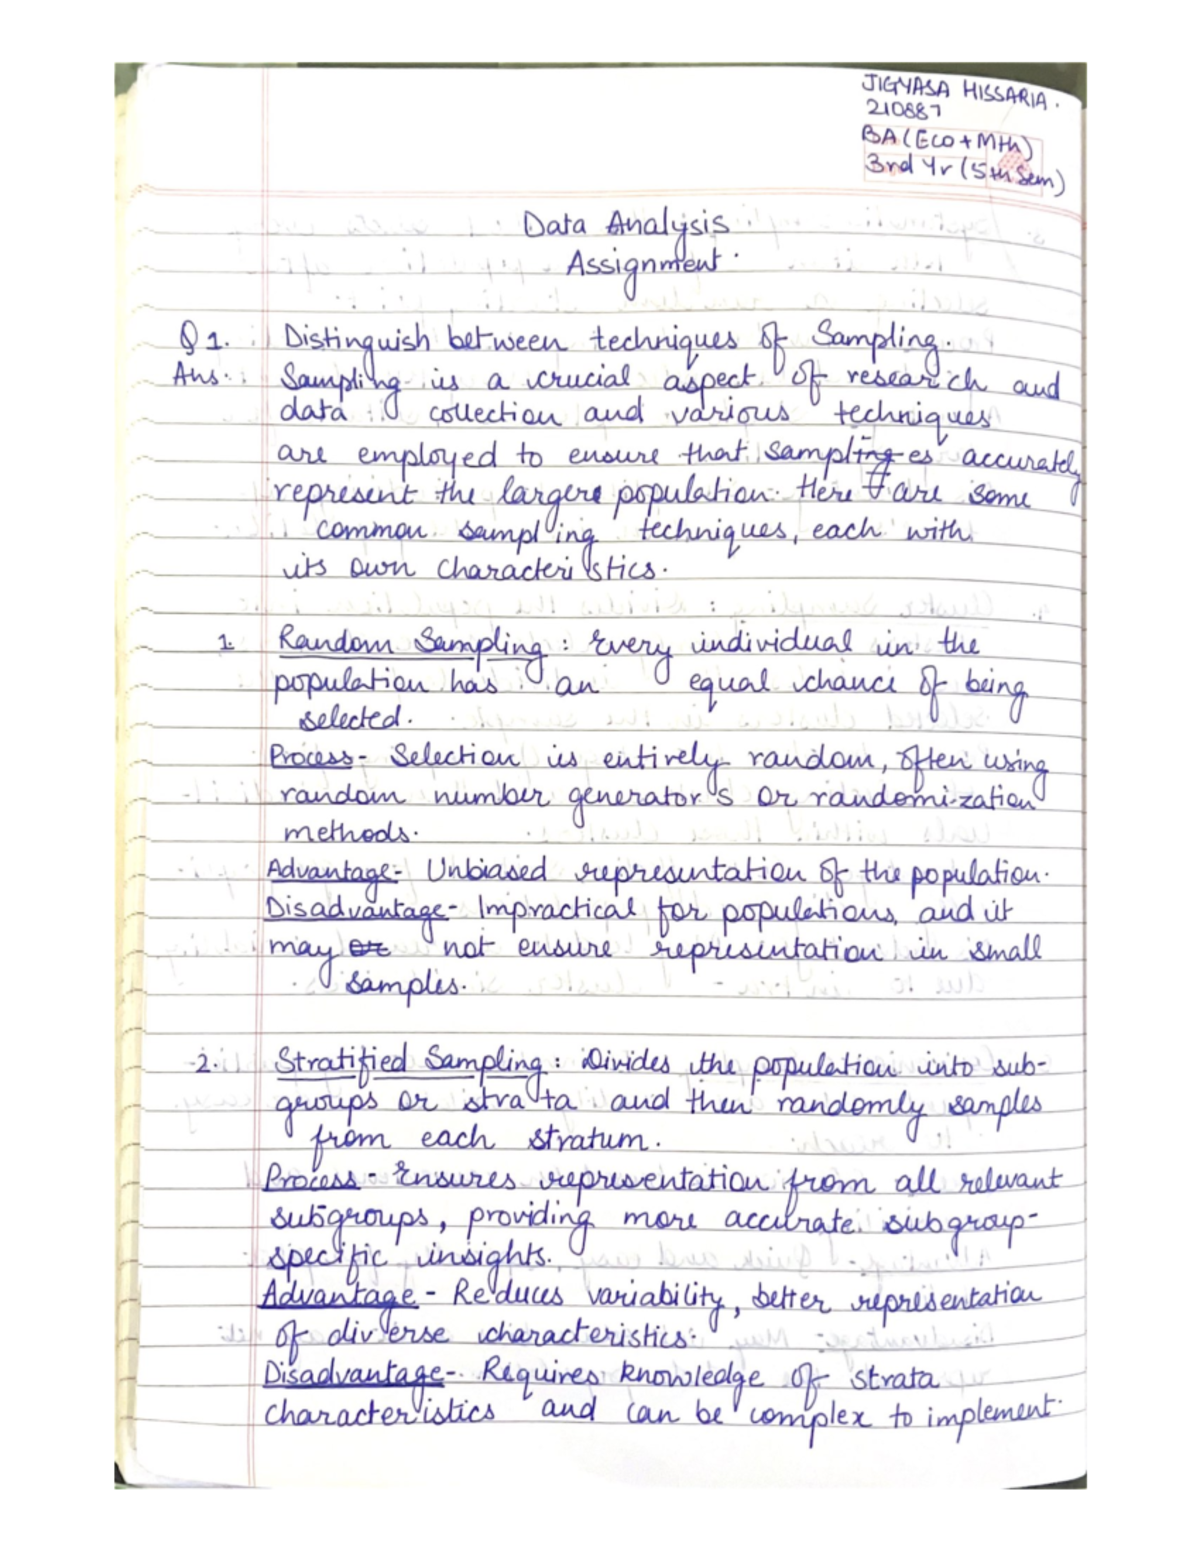 JIGYASA HISSARIA.
210887
BA (Eco + Mth)
3rd Yr (5th Sem)
Data Analysis
Assignment.
Q 1. Distinguish between techniques of Sampling.
Ans. Sampling is a crucial aspect of research and
data collection and various techniques
are employed to ensure that samples accurately
represent the larger population. Here are some
common sampling techniques, each with
its own characteristics.
1. Random Sampling : Every individual in the
population has an equal chance of being
selected.
Process - Selection is entirely random, often using
random number generators or randomization
methods.
Advantage - Unbiased representation of the population.
Disadvantage - Impractical for populations, and it
may or not ensure representation in small
samples.
2. Stratified Sampling : Divides the population into sub-
groups or strata and then randomly samples
from each stratum.
Process - Ensures representation from all relevant
subgroups, providing more accurate subgroup-
specific insights.
Advantage - Reduces variability, better representation
of diverse characteristics.
Disadvantage - Requires knowledge of strata
characteristics and can be complex to implement.